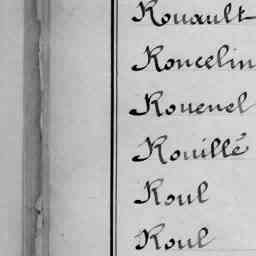 Rouault
Roncelin
Rouenel
Rouillé
Roul
Roul